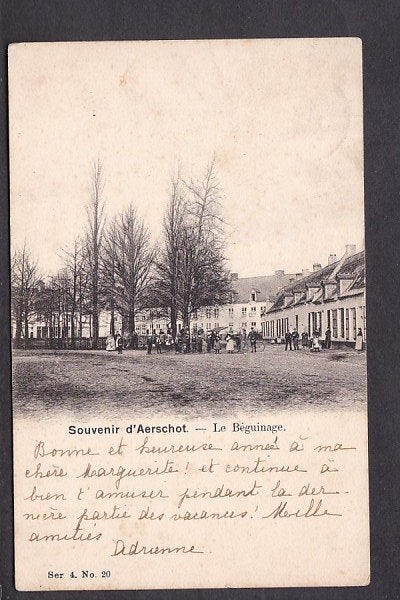 Souvenir d'Aerschot. — Le Béguinage.
Bonne et heureuse anneé à ma
chère Marguerite! et continue à
bien t'amuser pendant la der-
nière partie des vacances! Mille
amitiés
Adrienne
Ser 4. No. 20